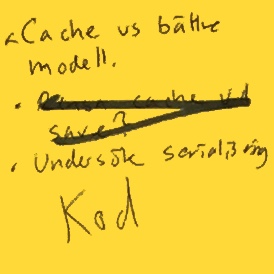 Cache vs bättre
modell.
Rensa cache vid
save?
Undersök serialisering
Kod